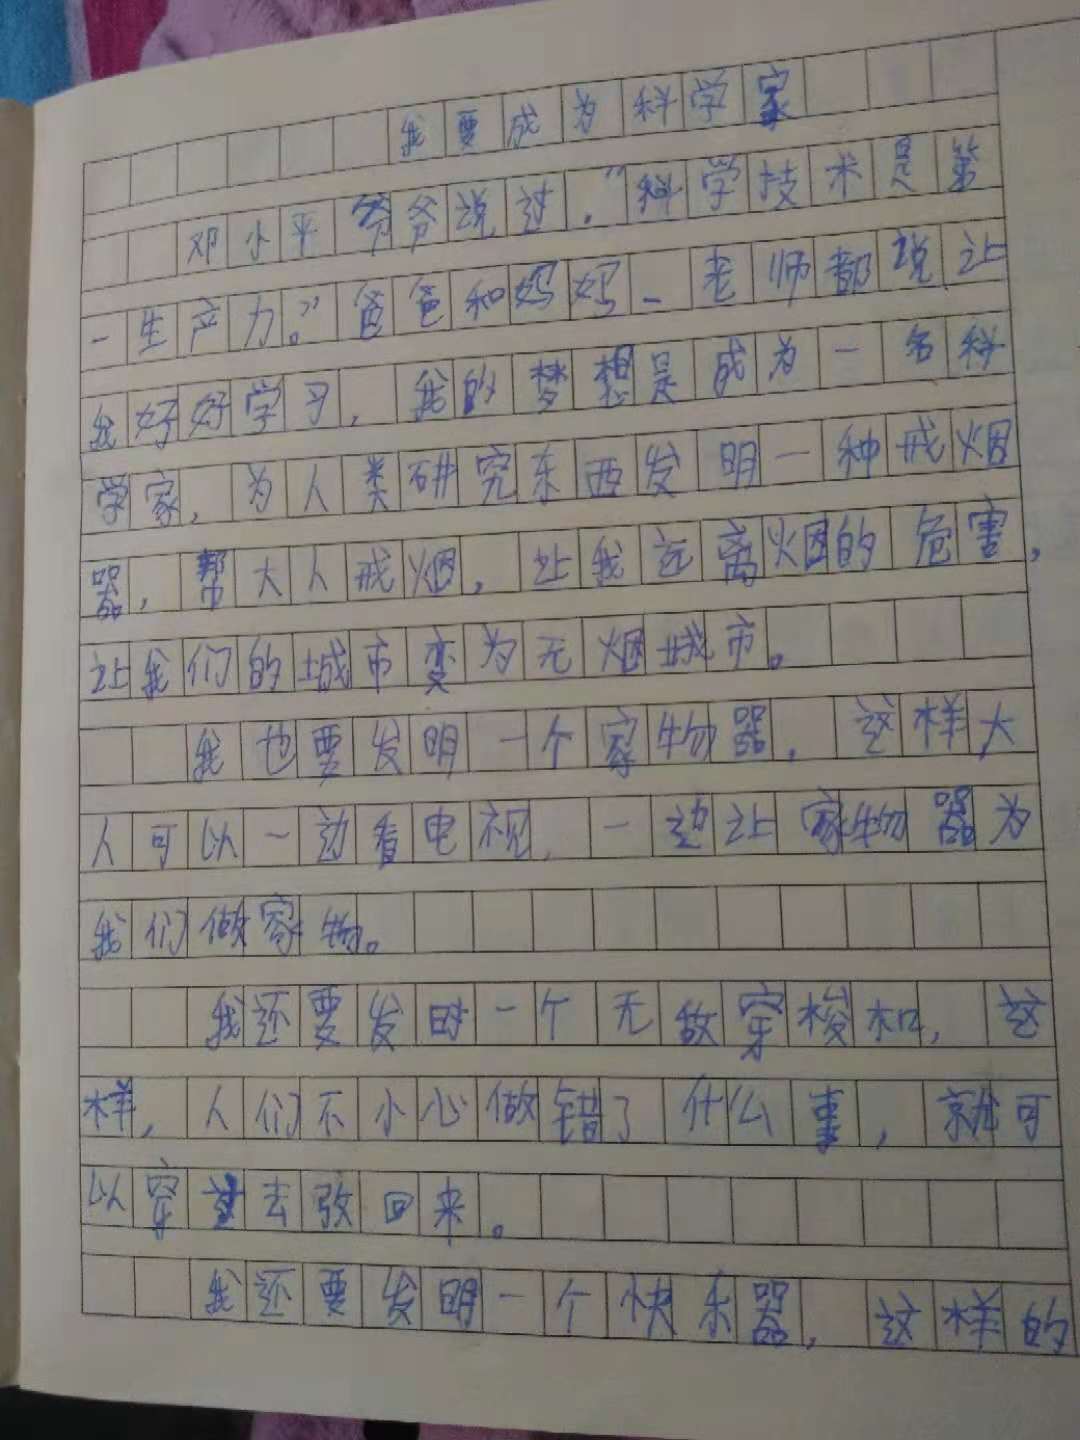 我要成为科学家
邓小平爷爷说过．“科学技术是第
一生产力。”爸爸和妈妈、老师都说让
我好好学习，我的梦想是成为一名科
学家，为人类研究东西发明一种戒烟
器，帮大人戒烟，让我远离烟的危害，
让我们的城市变为无烟城市。
我也要发明一个家物器，这样大
人可以一边看电视，一边让家物器为
我们做家物。
我还要发时一个无敌穿梭机，这
样，人们不小心做错了什么事，就可
以穿过去改回来。
我还要发明一个快乐器，这样的